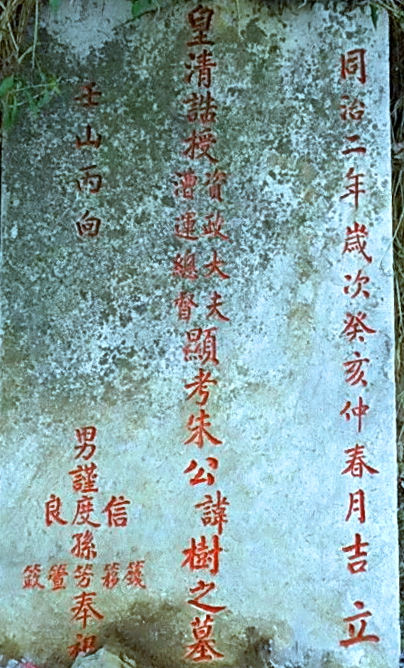 同治二年歲次癸亥仲春月吉立
皇清誥授資政大夫漕運總督顯考朱公諱樹之墓
壬山丙向
男謹信度良孫芳萱奉祀